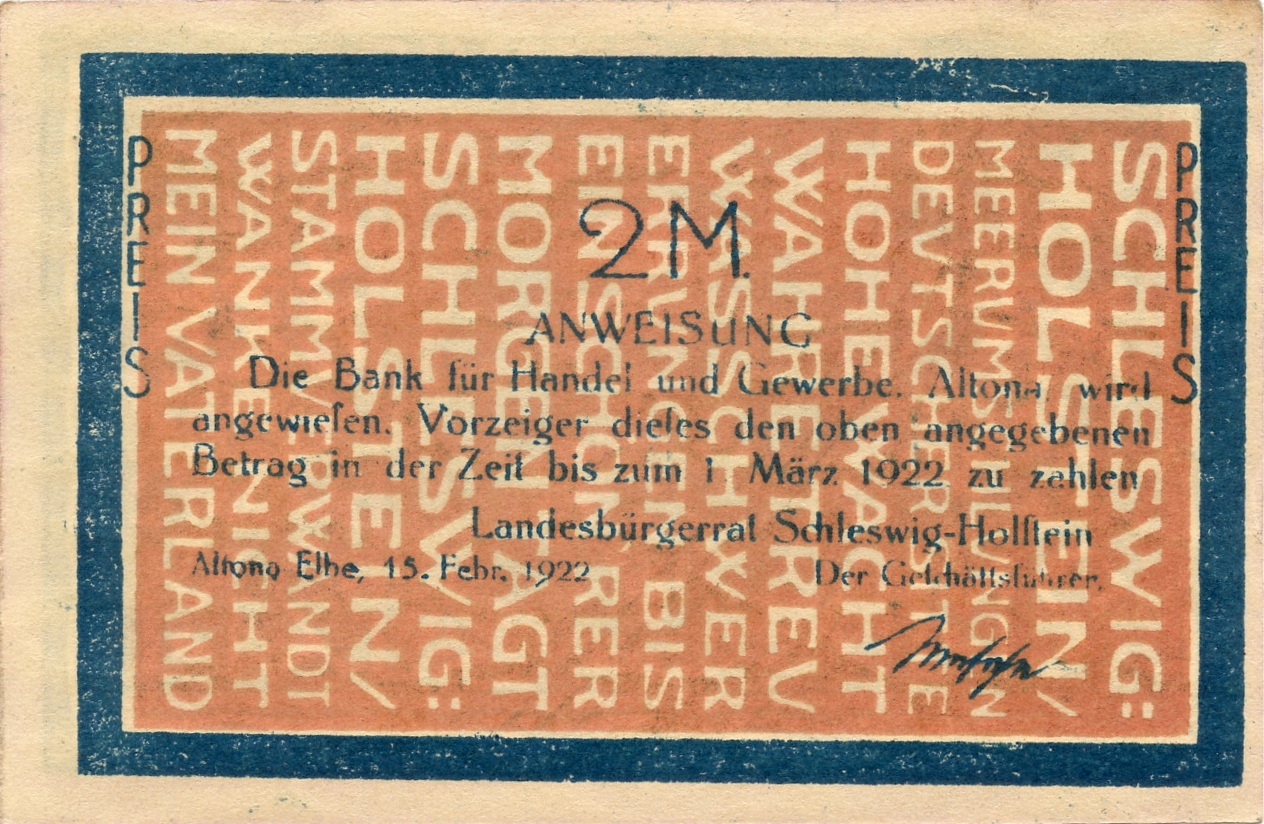 PREIS
PREIS
2 M.
ANWEISUNG
Die Bank für Handel und Gewerbe, Altona, wird
angewiesen, Vorzeiger dieses den oben angegebenen
Betrag in der Zeit bis zum 1. März 1922 zu zahlen
Landesbürgerrat Schleswig-Holstein
Altona Elbe, 15. Febr. 1922
Der Geschäftsführer.
SCHLESWIG:
HOLSTEIN/
MEERVMSCHLVNGEN
DEVTSCHER SITTE
HOHE WACHT
WAHRE TREV
WAS SCHWER
ERRVNGEN BIS
EIN SCHÖNRER
MORGEN TAGT
SCHLESVIG:
HOLSTEIN/
STAMMVERWANDT
WANKE NICHT
MEIN VATERLAND